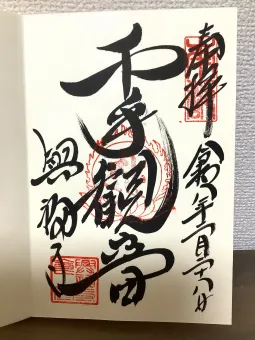 奉拝
令和年一月二十八日
千手觀音
興福寺